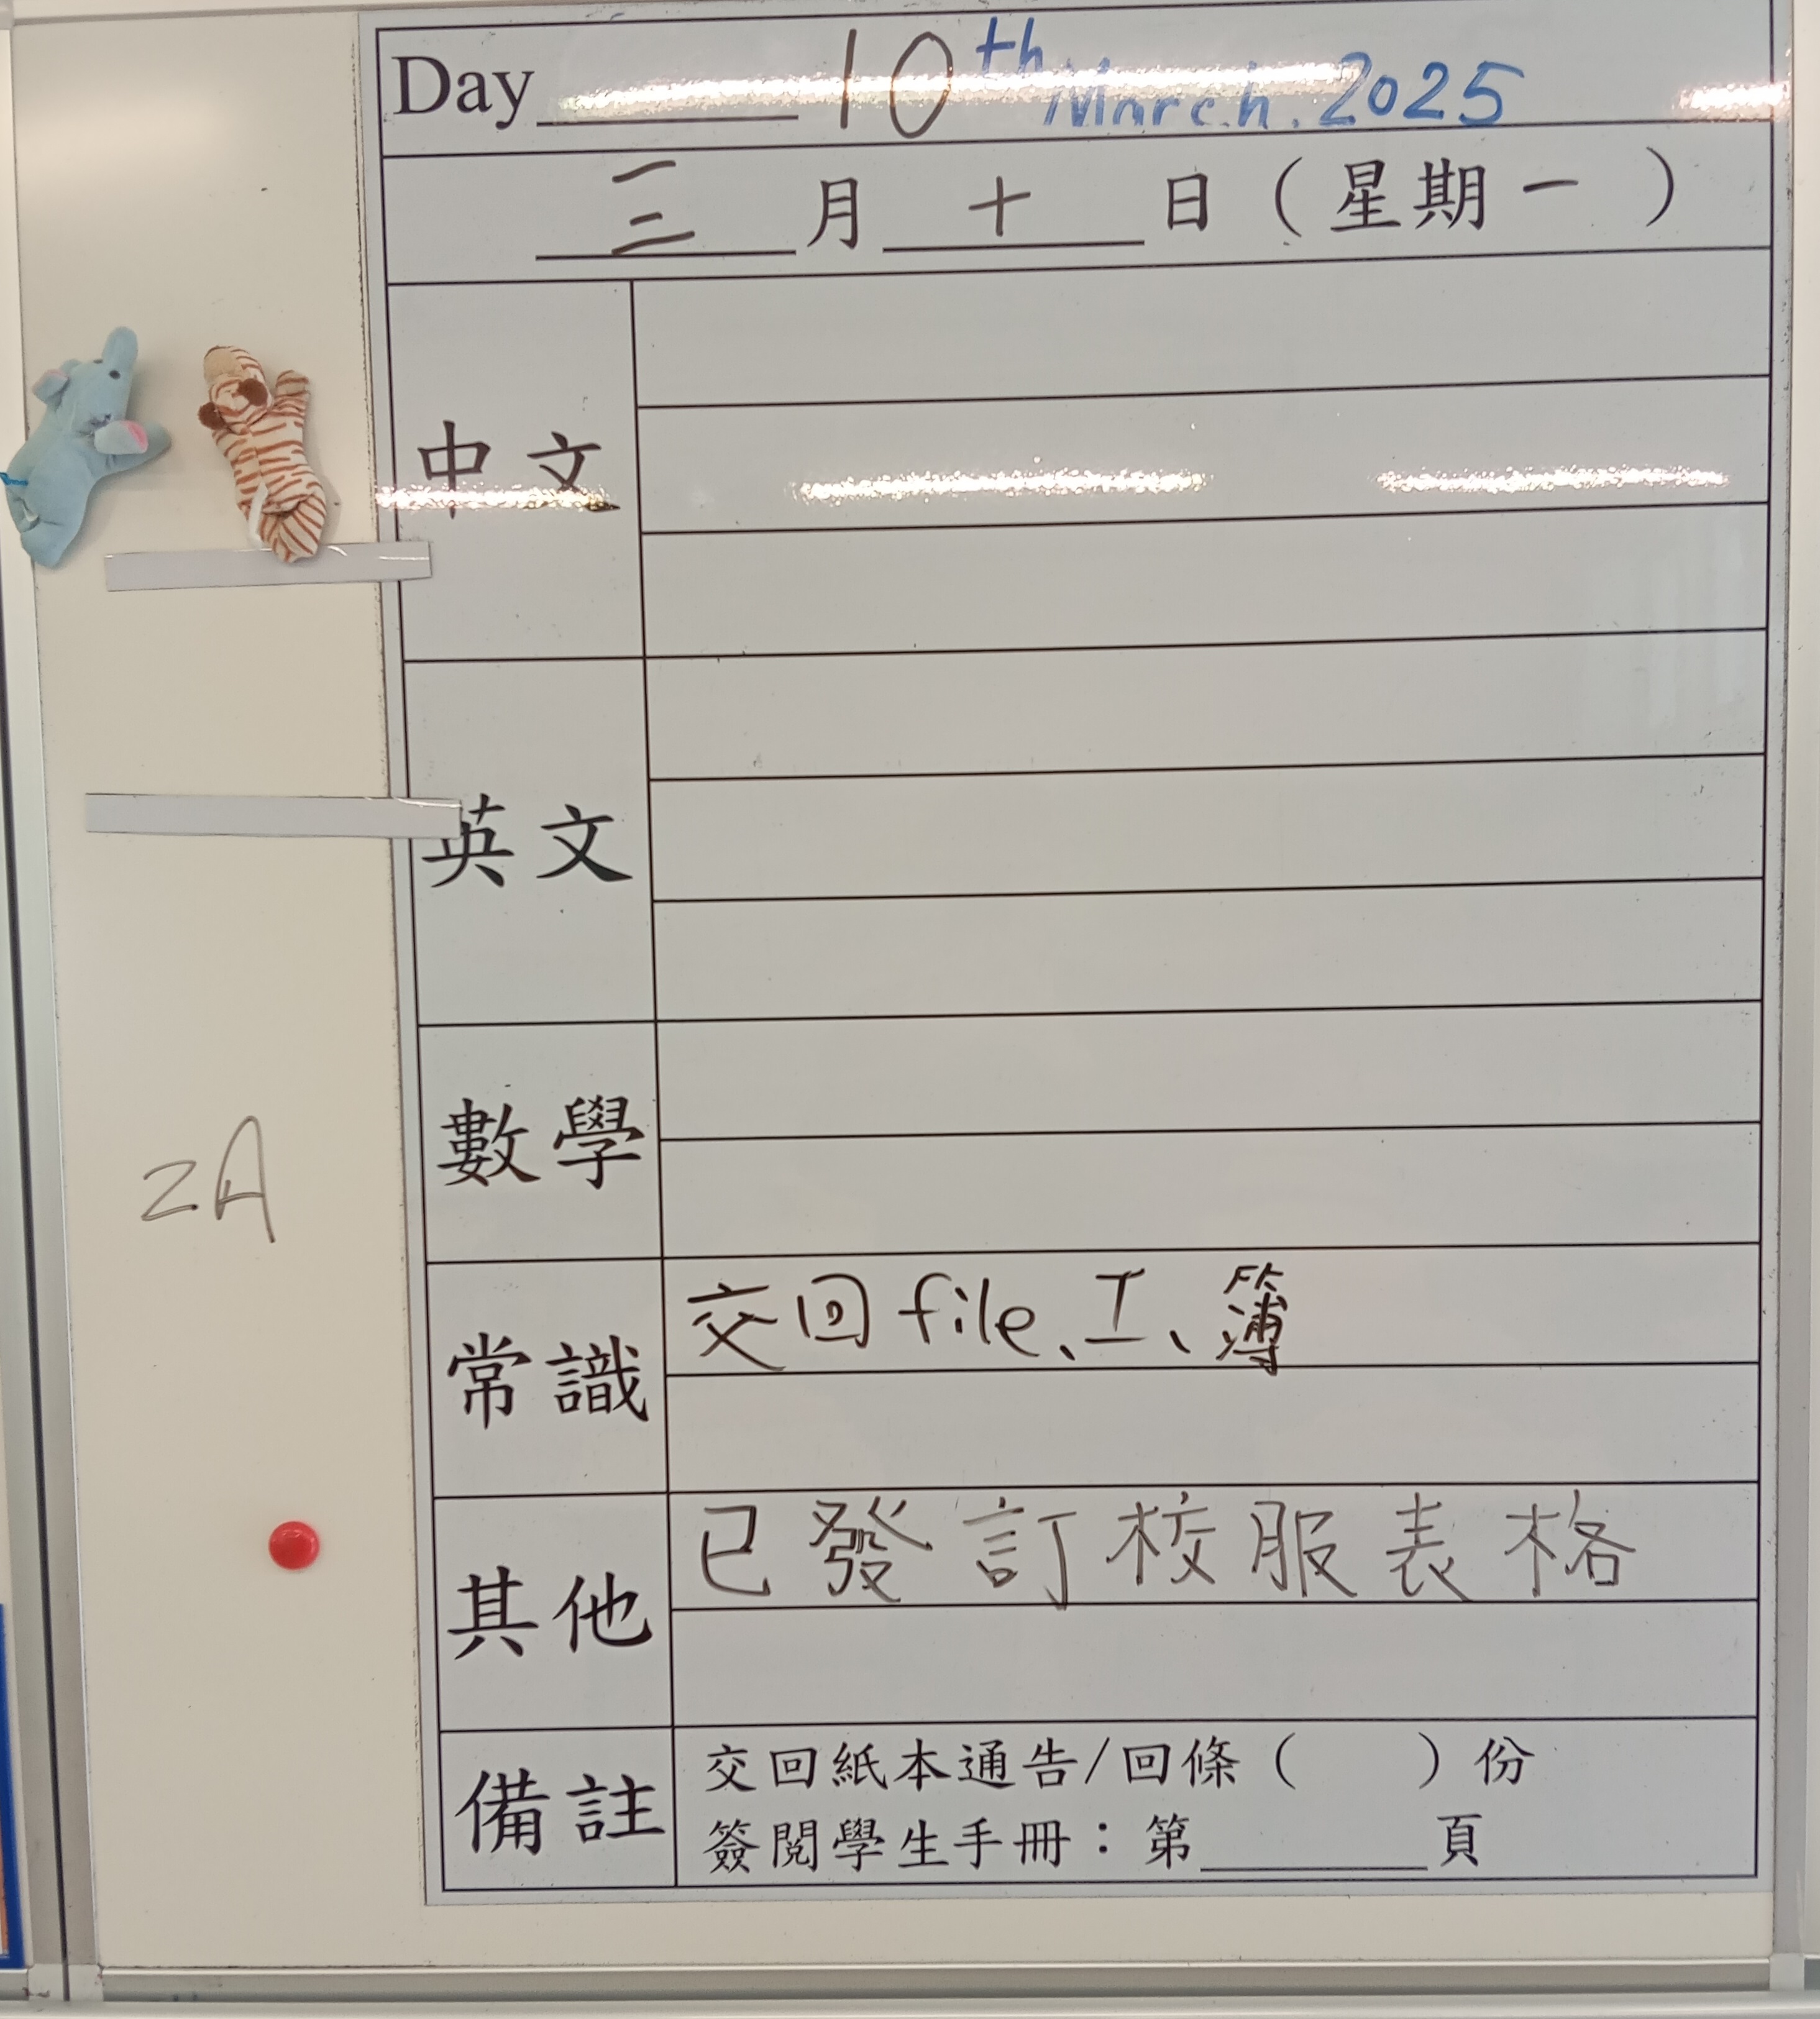 Day 10th March. 2025
三月十日（星期一）
中文
英文
數學
2A
常識 交回file、工、簿
其他 已發訂校服表格
備註 交回紙本通告/回條（ ）份
簽閱學生手冊：第____頁